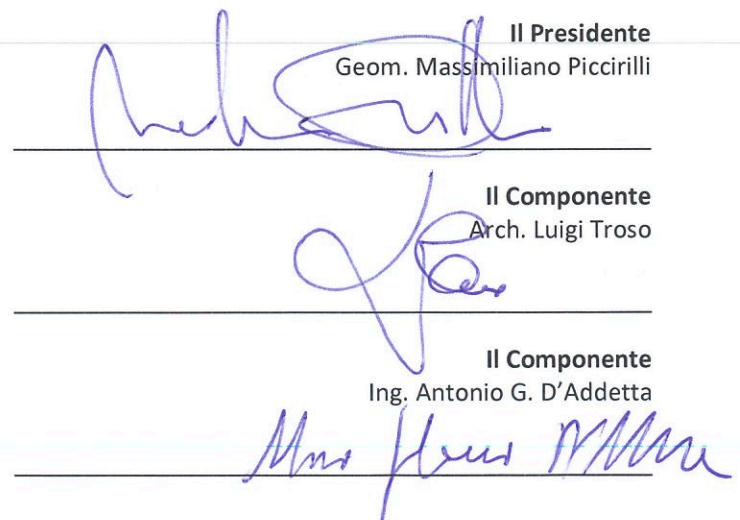 Il Presidente
Geom. Massimiliano Piccirilli
Il Componente
Arch. Luigi Troso
Il Componente
Ing. Antonio G. D'Addetta